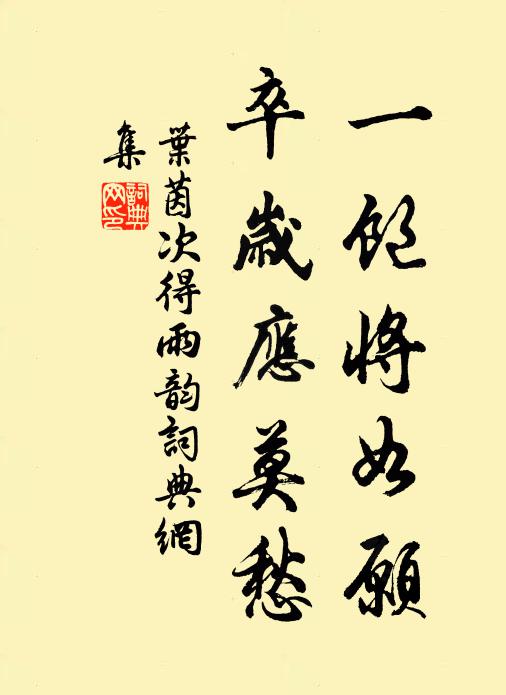 一飽將如願
卒歲應莫愁
葉茵次得雨韵詞典網
集
詞典網印